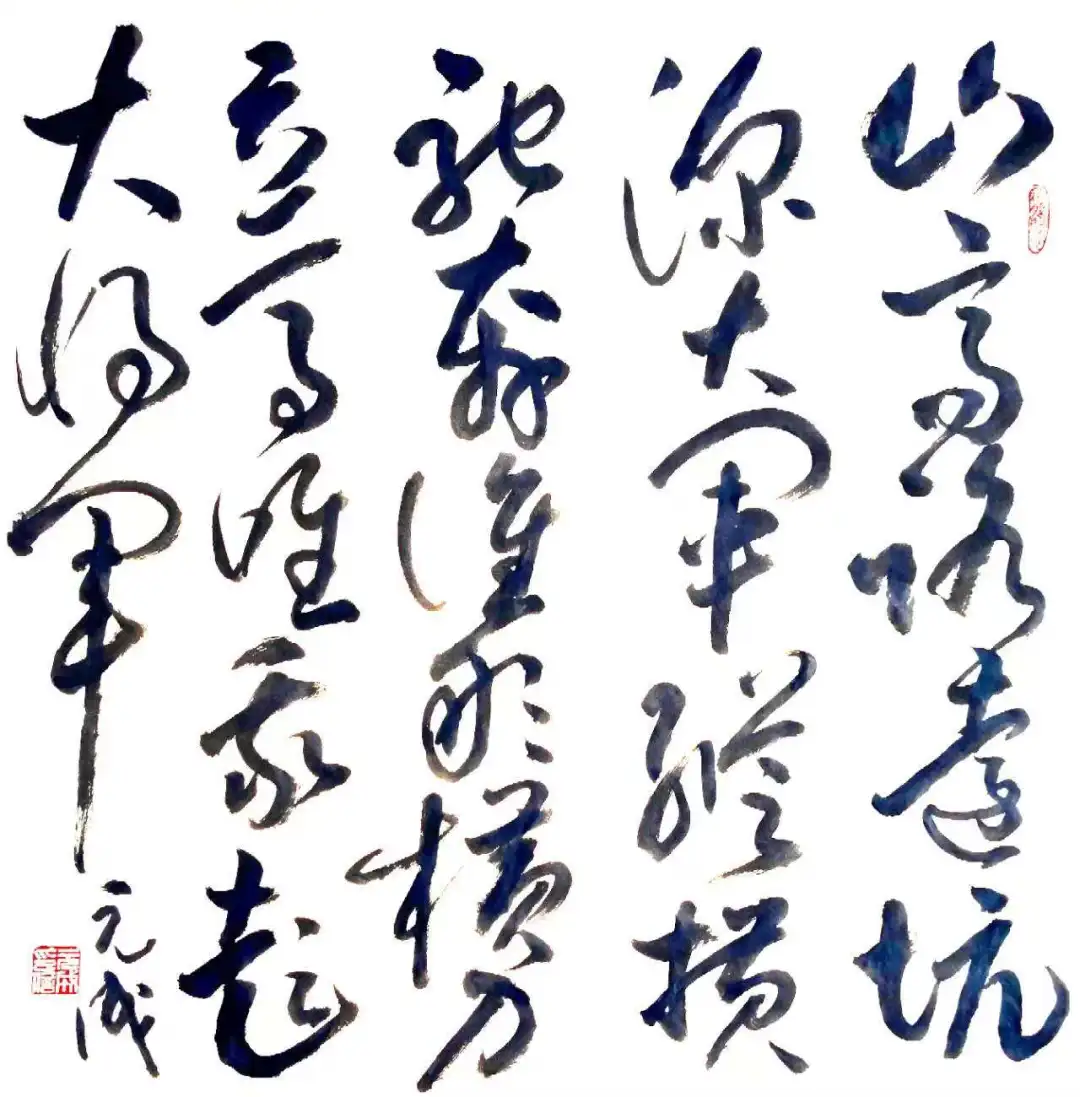 山高路遠坑
深大軍縱横
馳奔誰敢横刀
立馬唯我彭
大將軍
元成